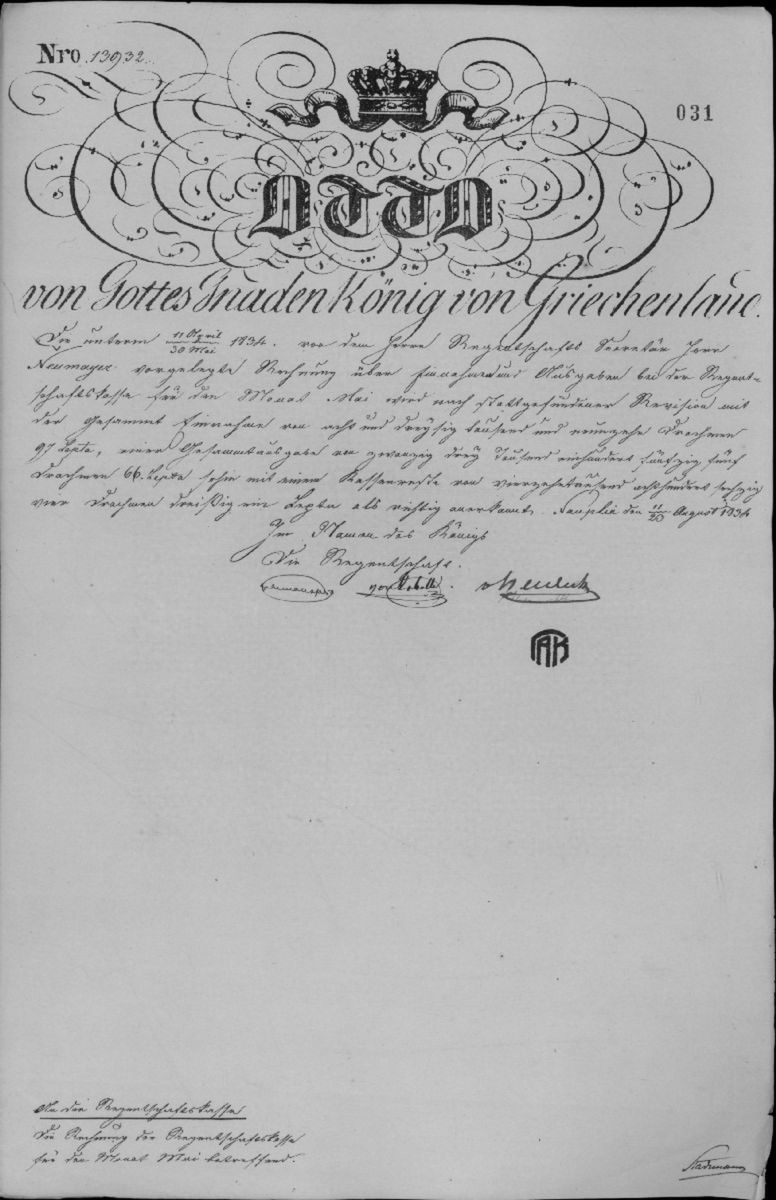 Nro 13932.
031
OTTO
von Gottes Gnaden König von Griechenland.
Die unterm 11 April / 30 Mai 1834. von dem Herrn Regentschafts Secretär Herrn
Neumayer vorgelegte Rechnung über Einnahme und Ausgaben bei der Regent-
schaftskasse für den Monat Mai wird nach stattgefundener Revision mit
der Gesammt Einnahme von acht und dreysig tausend und neunzehn Drachmen
97 Lepta, einer Gesammtausgabe von zwanzig drey Tausend einhundert fünfzig fünf
Drachmen 66 Lepta sohin mit einem Kassenreste von vierzehntausend achthundert sechzig
vier Drachmen dreißig ein Lepta als richtig anerkannt. Nauplia den 11/20 August 1834
Im Namen des Königs
Die Regentschaft.
von Kobell. v Heideck
An die Regentschaftskasse
Die Rechnung der Regentschaftskasse
für den Monat Mai betreffend.